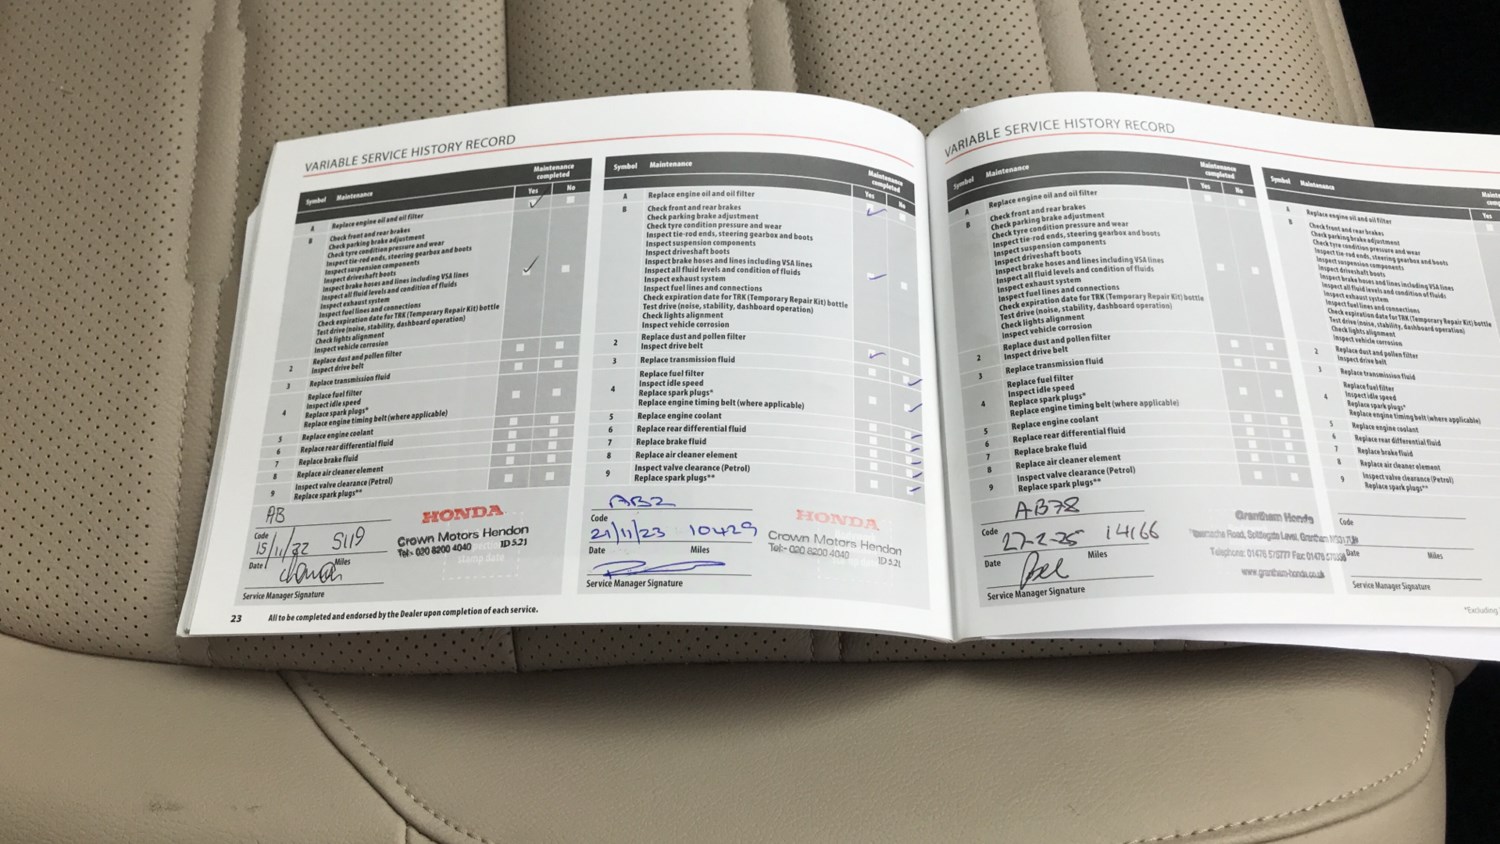 VARIABLE SERVICE HISTORY RECORD
Symbol Maintenance Maintenance completed
Yes No
A Replace engine oil and oil filter
B Check front and rear brakes
Check parking brake adjustment
Check tyre condition pressure and wear
Inspect tie-rod ends, steering gearbox and boots
Inspect suspension components
Inspect driveshaft boots
Inspect brake hoses and lines including VSA lines
Inspect all fluid levels and condition of fluids
Inspect exhaust system
Inspect fuel lines and connections
Check expiration date for TRK (Temporary Repair Kit) bottle
Test drive (noise, stability, dashboard operation)
Check lights alignment
Inspect vehicle corrosion
2 Replace dust and pollen filter
Inspect drive belt
3 Replace transmission fluid
Replace fuel filter
Inspect idle speed
4 Replace spark plugs*
Replace engine timing belt (where applicable)
5 Replace engine coolant
6 Replace rear differential fluid
7 Replace brake fluid
8 Replace air cleaner element
9 Inspect valve clearance (Petrol)
Replace spark plugs**
AB
Code
15/11/22 5119
Date Miles
Service Manager Signature
HONDA
Crown Motors Hendon
Tel:- 020 8200 4040 ID 5.21
stamp date
23 All to be completed and endorsed by the Dealer upon completion of each service.
Symbol Maintenance Maintenance completed
Yes No
A Replace engine oil and oil filter
B Check front and rear brakes
Check parking brake adjustment
Check tyre condition pressure and wear
Inspect tie-rod ends, steering gearbox and boots
Inspect suspension components
Inspect driveshaft boots
Inspect brake hoses and lines including VSA lines
Inspect all fluid levels and condition of fluids
Inspect exhaust system
Inspect fuel lines and connections
Check expiration date for TRK (Temporary Repair Kit) bottle
Test drive (noise, stability, dashboard operation)
Check lights alignment
Inspect vehicle corrosion
2 Replace dust and pollen filter
Inspect drive belt
3 Replace transmission fluid
Replace fuel filter
Inspect idle speed
4 Replace spark plugs*
Replace engine timing belt (where applicable)
5 Replace engine coolant
6 Replace rear differential fluid
7 Replace brake fluid
8 Replace air cleaner element
9 Inspect valve clearance (Petrol)
Replace spark plugs**
AB2
Code
21/11/23 10429
Date Miles
Service Manager Signature
HONDA
Crown Motors Hendon
Tel:- 020 8200 4040 ID 5.21
VARIABLE SERVICE HISTORY RECORD
Symbol Maintenance Maintenance completed
Yes No
A Replace engine oil and oil filter
B Check front and rear brakes
Check parking brake adjustment
Check tyre condition pressure and wear
Inspect tie-rod ends, steering gearbox and boots
Inspect suspension components
Inspect driveshaft boots
Inspect brake hoses and lines including VSA lines
Inspect all fluid levels and condition of fluids
Inspect exhaust system
Inspect fuel lines and connections
Check expiration date for TRK (Temporary Repair Kit) bottle
Test drive (noise, stability, dashboard operation)
Check lights alignment
Inspect vehicle corrosion
2 Replace dust and pollen filter
Inspect drive belt
3 Replace transmission fluid
Replace fuel filter
Inspect idle speed
4 Replace spark plugs*
Replace engine timing belt (where applicable)
5 Replace engine coolant
6 Replace rear differential fluid
7 Replace brake fluid
8 Replace air cleaner element
9 Inspect valve clearance (Petrol)
Replace spark plugs**
AB78
Code
27-2-25 14166
Date Miles
Service Manager Signature
Grantham Honda
Road, Level, Grantham
Telephone: 01476 575777 Fax: 01476
www.grantham-honda.co.uk
Symbol Maintenance
Yes
A Replace engine oil and oil filter
B Check front and rear brakes
Check parking brake adjustment
Check tyre condition pressure and wear
Inspect tie-rod ends, steering gearbox and boots
Inspect suspension components
Inspect driveshaft boots
Inspect brake hoses and lines including VSA lines
Inspect all fluid levels and condition of fluids
Inspect exhaust system
Inspect fuel lines and connections
Check expiration date for TRK (Temporary Repair Kit) bottle
Test drive (noise, stability, dashboard operation)
Check lights alignment
Inspect vehicle corrosion
2 Replace dust and pollen filter
Inspect drive belt
3 Replace transmission fluid
Replace fuel filter
Inspect idle speed
4 Replace spark plugs*
Replace engine timing belt (where applicable)
5 Replace engine coolant
6 Replace rear differential fluid
7 Replace brake fluid
8 Replace air cleaner element
9 Inspect valve clearance (Petrol)
Replace spark plugs**
Code
Date Miles
Service Manager Signature
*Excluding